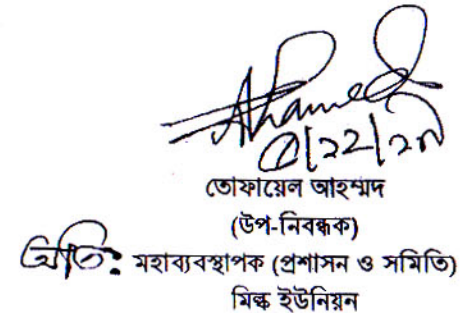 তোফায়েল আহম্মদ
(উপ-নিবন্ধক)
অতিঃ মহাব্যবস্থাপক (প্রশাসন ও সমিতি)
মিল্ক ইউনিয়ন